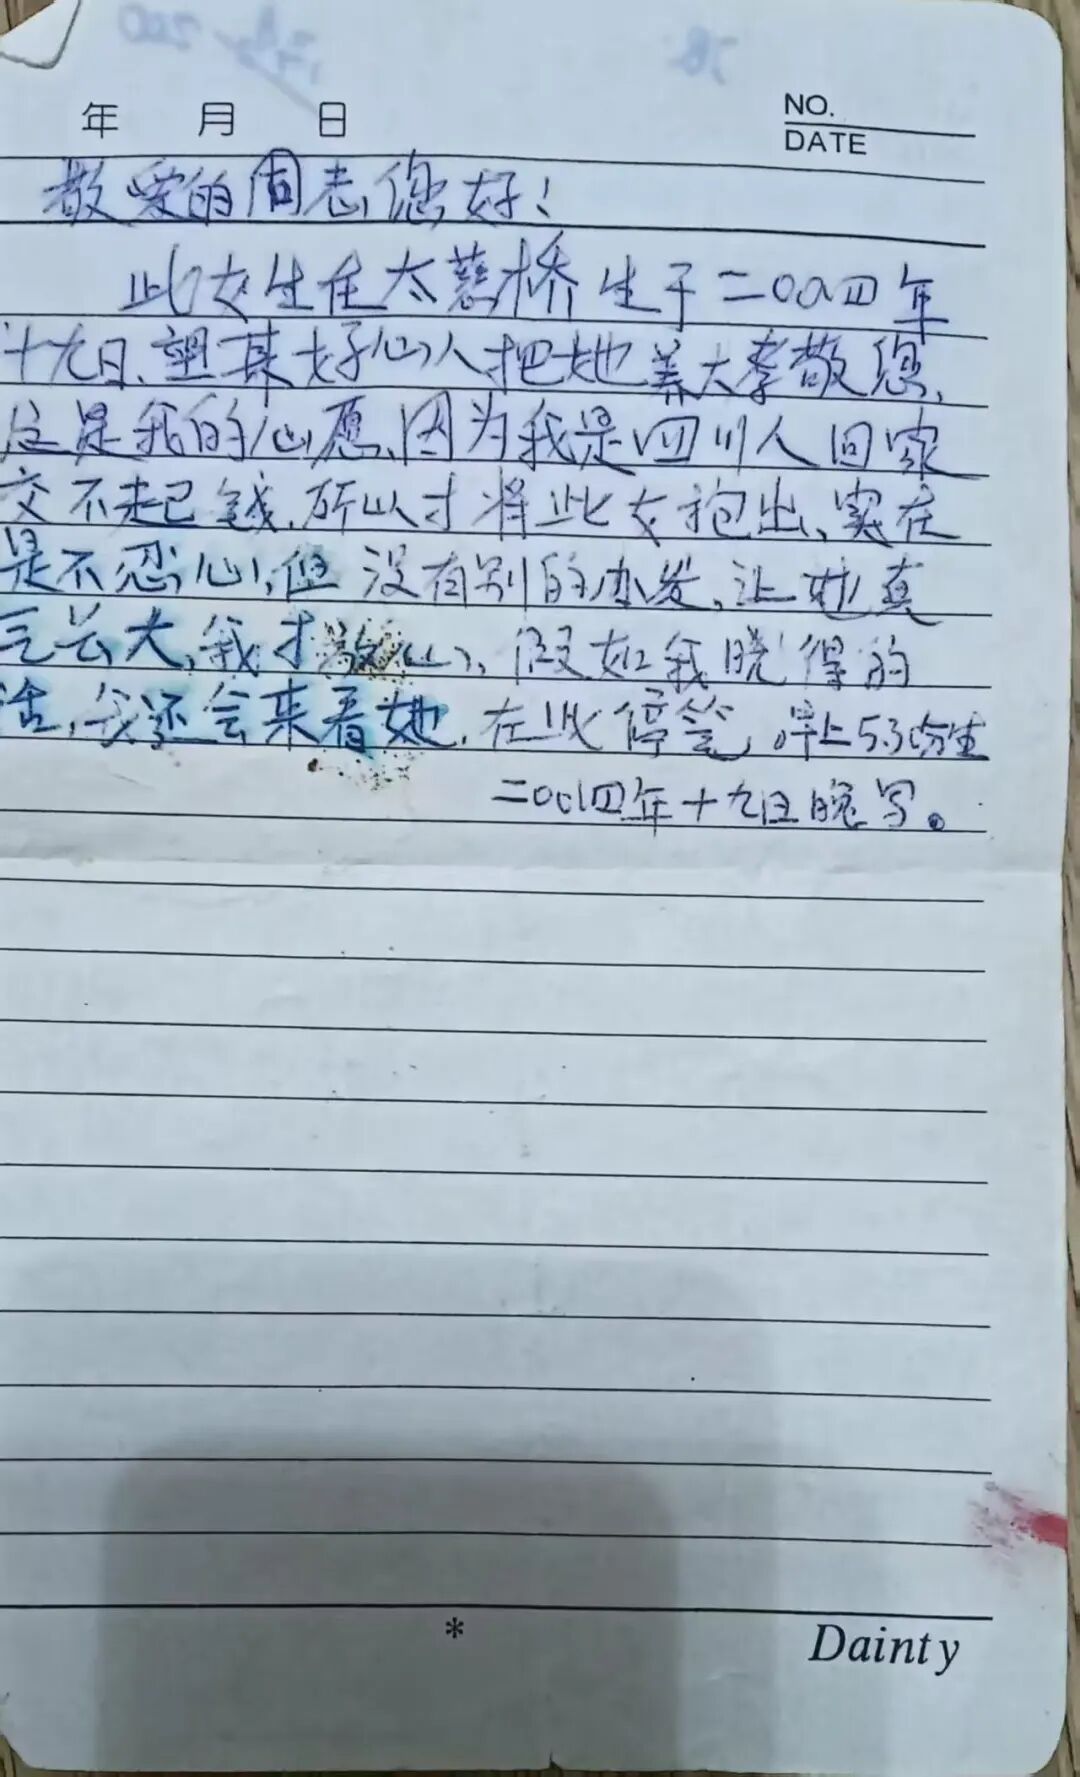 年 月 日
NO.
DATE
敬爱的同志您好!
此女生在太慈桥生于二00四年
十九日、望某好心人把她养大孝敬您,
这是我的心愿,因为我是四川人回家
交不起己钱,所以才将此女抱出、实在
是不忍心,但没有别的办发,让她真
长大,我才放心、假如我晓得的
话,我还会来看她,在此停笔,早上5.30分生
二00四年十九日晚写。
* Dainty